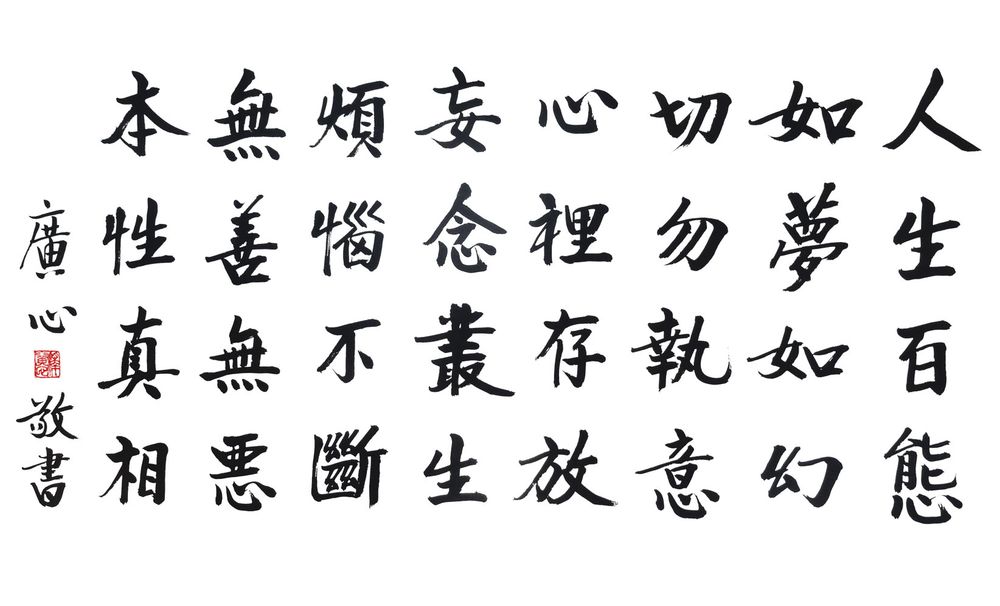 人生百態
如夢如幻
切勿執意
心裡存放
妄念叢生
煩惱不斷
無善無悪
本性真相
廣心
敬書